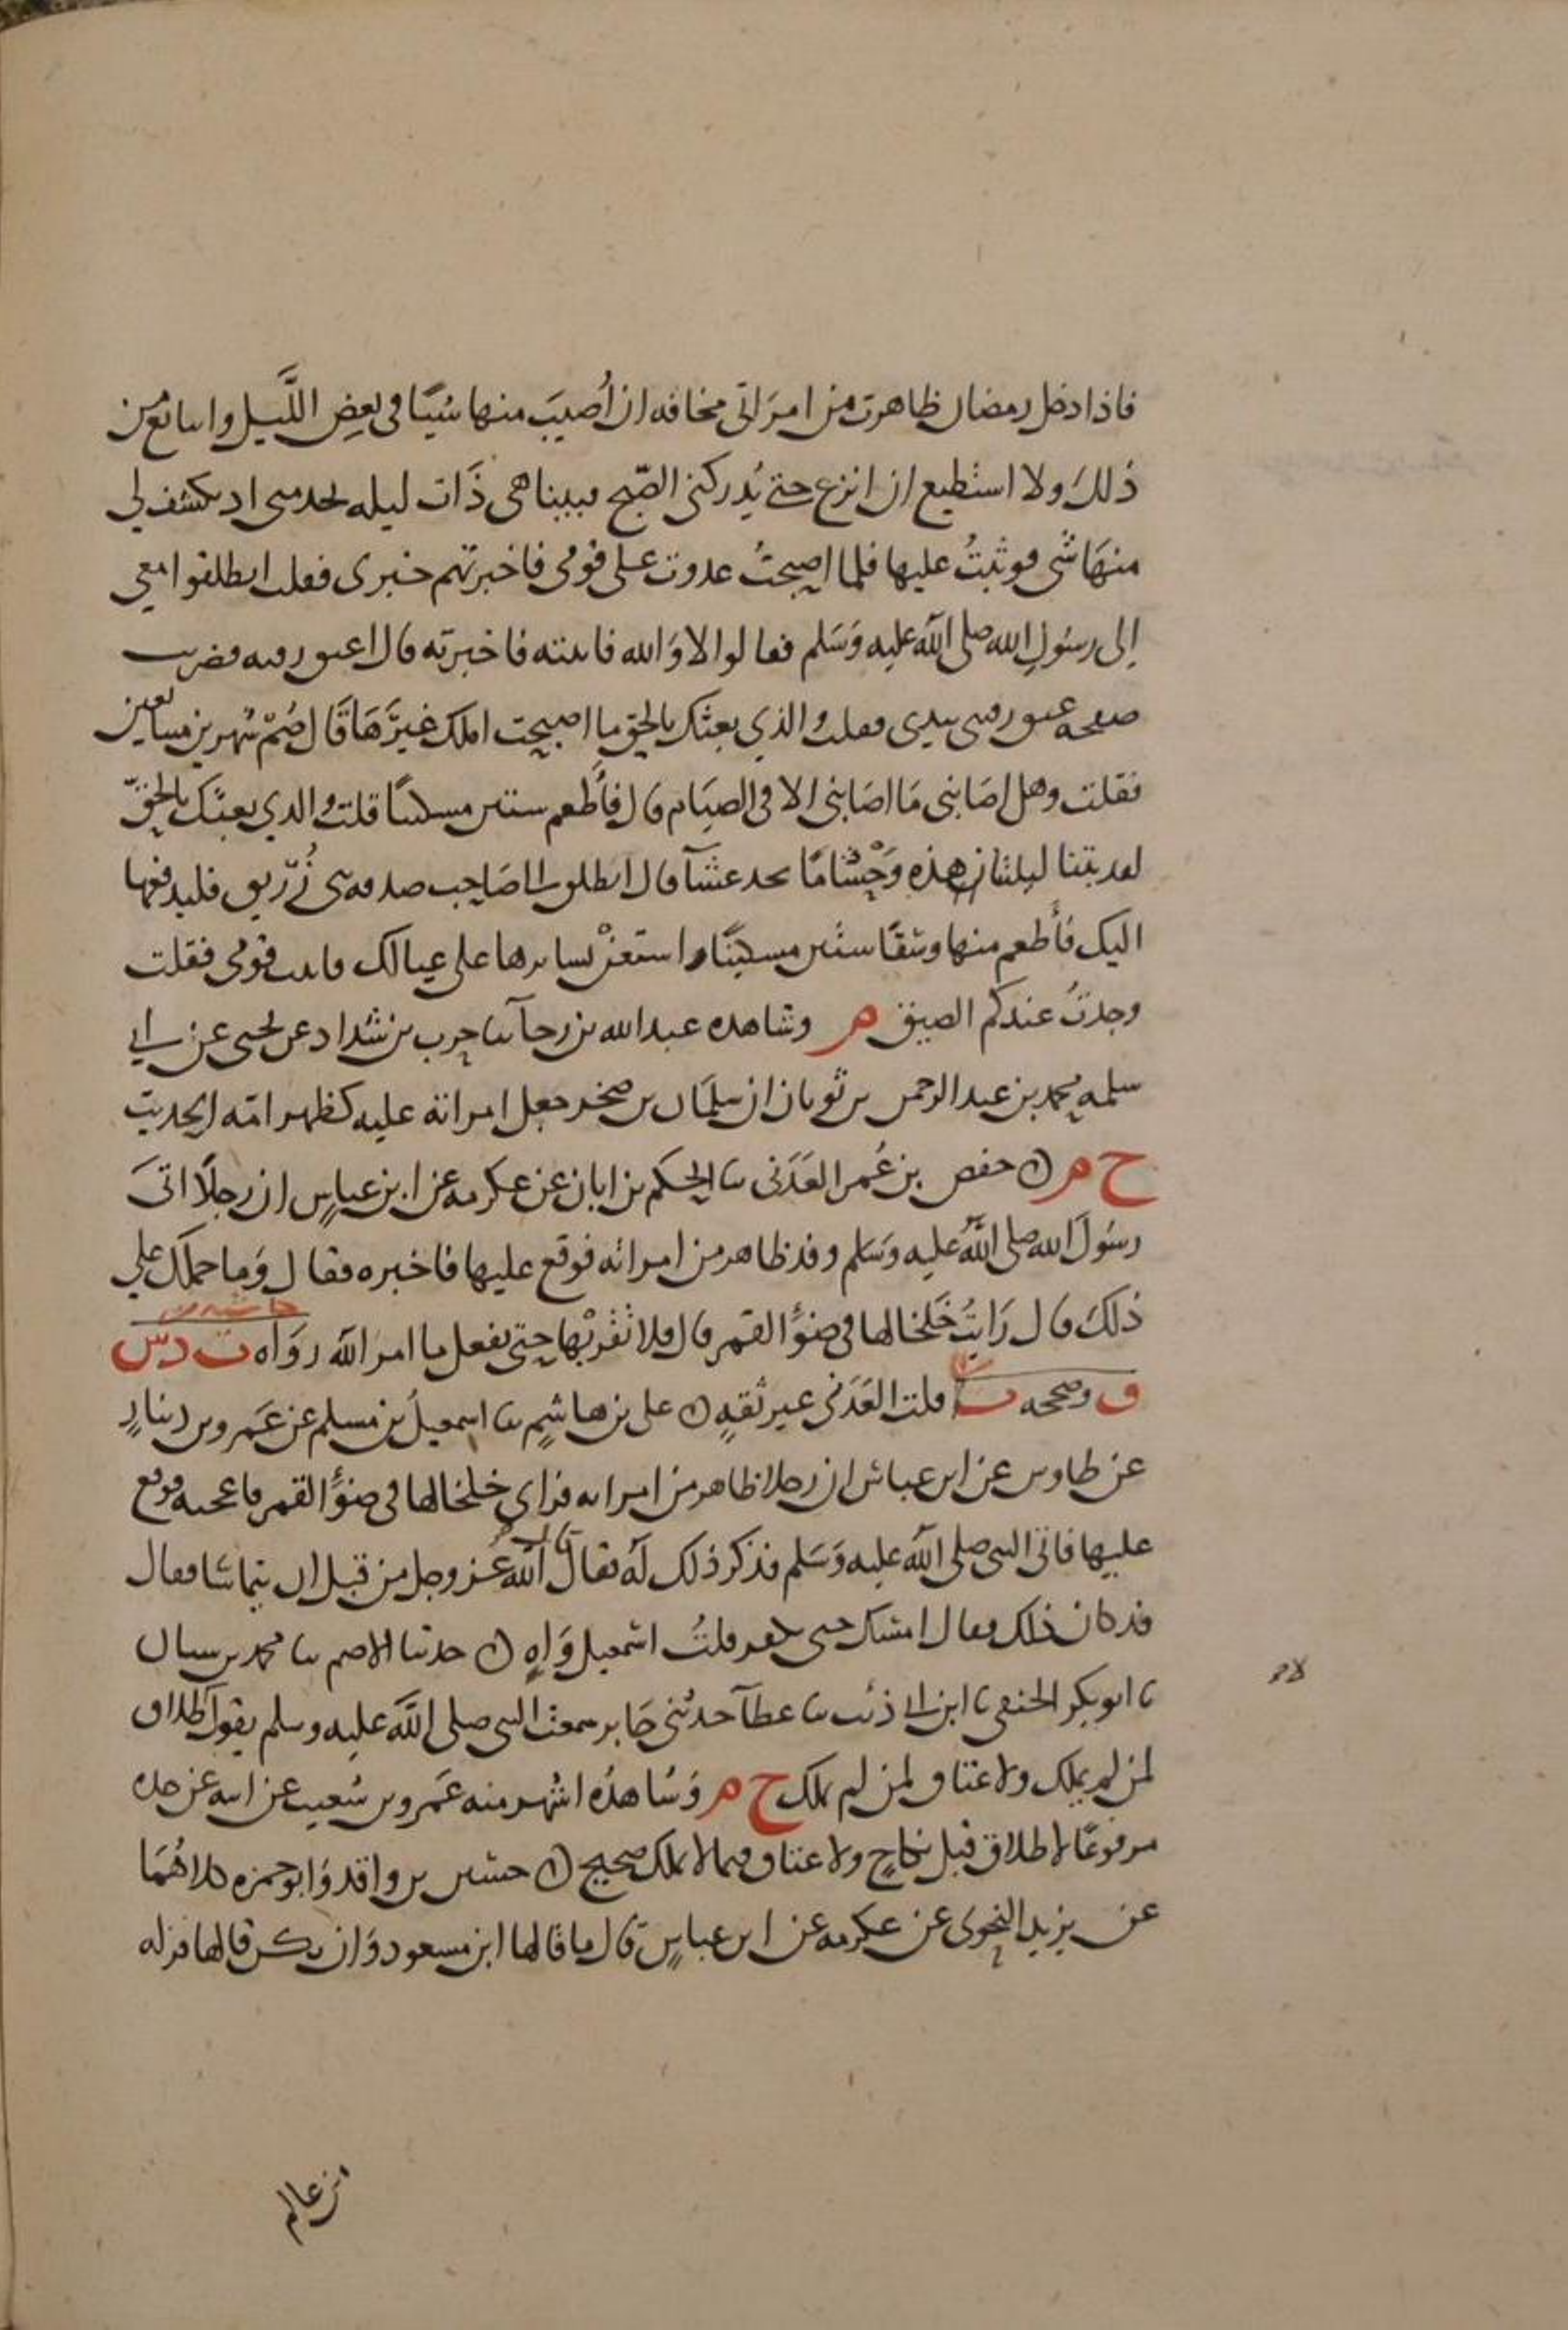 فاذا دخل رمضان ظاهرت من امراتي مخافه ان أُصيبَ منها شيًا في بعضِ اللَّيل واتتابع من
ذلك ولا استطيع ان انزع حتى يُدركني الصّبح فبينا هي ذَات ليله تخدمني اذ تكشف لي
منهَا شي فوثبتُ عليها فلما اصبحتُ غدوت على قومي فاخبرتهم خبري فقلت انطلقوا معي
الى رسُولِ الله صلى الله عليه وَسَلم فقالوا لا وَالله فاتيته فاخبرته قال اعتق رقبه فضربت
صفحه عنق رقبتي بيدي فقلت والذي بعثك بالحق ما اصبحت املك غيرَهَا قَال صُمْ شهرين متتابعين
فقلت وهل اصَابني مَا اصَابني الا في الصيَام قال فأطعم ستين مسكينًا قلت والذي بعثك بالحقّ
لقد بتنا ليلتنا هذه وَحْشًا مَا نجد عشآ قال انطلق الى صَاحِب صدقه بني زُرَيق فليدفعها
اليك فأطعم منها وسْقًا ستين مسكينًا واستعنْ بسايرها على عيالك فاتيت قومي فقلت
وجدتُ عندكم الضيق م وشاهده عبد الله بن رجآ ثنا حرب بن شداد عن يحيى عن ابي
سلمه ومحمد بن عبد الرحمن بن ثوبان ان سلمَان بن صخر جعل امراته عليه كظهر امّه الحديث
خ م ن حفص بن عُمر العَدَني ثنا الحكم بن ابان عن عكرمه عن ابن عباسٍ ان رجلًا اتىَ
رسُولَ الله صلى اللهُ عليه وَسَلم وقد ظاهر من امراته فوقع عليها فاخبره فقال وَما حملك على
ذلك قال رَايتُ خَلخالها في ضوْءِ القمر قال فلا تقْربْها حتى تفعل ما امر الله روَاه ت د س
ق وصححه ت قلت العَدَني غير ثقهٍ ن علي بن هاشمٍ ثنا اسمعيلُ بن مسلم عن عَمرو بن دينارٍ
عن طاوس عن ابن عباس ان رجلا ظاهر من امراته فراى خلخالها في ضوْءِ القمر فاعجبه فوقع
عليها فاتى النبي صلى الله عليه وَسَلم فذكر ذلك له فقال الله عز وجل من قبل ان يتماسا فقال
قد كان ذلك فقال امسك حتى تكفر قلتُ اسمعيل وَاهٍ ن حدثنا الاصم ثنا محمد بن سنان
ثنا ابو بكر الحنفي ثنا ابن ابي ذئب ثنا عطآ حدثني جَابر سمعت النبي صلى الله عليه وسلم يقول لا طلاق
لمن لم يملك ولا عتاق لمن لم يملك خ م وَشاهدُه اشهر منه عَمرو بن شُعيب عن ابيه عن جده
مرفوعًا لا طلاق قبل نكاحٍ ولا عتاق فيما لا يملك صحيح ن حسَين بن واقد وَابو حمزه كلاهُما
عن يزيد النحوي عن عكرمه عن ابن عباسٍ قال ما قالها ابن مسعود وَان يكن قالها فزله
من عالم